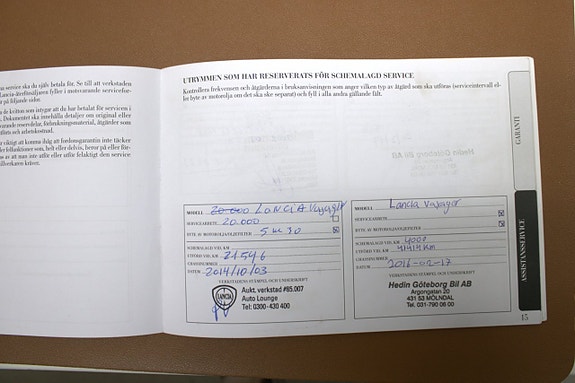 na service ska du själv betala för. Se till att verkstaden
Lancia-återförsäljaren fyller i motsvarande servicefor-
r på följande sidor.
de kvitton som intygar att du har betalat för servicen i
. Dokumentet ska innehålla detaljer om original eller
varande reservdelar, förbrukningsmaterial, åtgärder som
utförts och arbetskostnad.
r viktigt att komma ihåg att fordonsgarantin inte täcker
ler felfunktioner som, helt eller delvis, beror på eller för-
s av att man inte utför eller utför felaktigt den service
illverkaren kräver.
UTRYMMEN SOM HAR RESERVERATS FÖR SCHEMALAGD SERVICE
Kontrollera frekvensen och åtgärderna i bruksanvisningen som anger vilken typ av åtgärd som ska utföras (serviceintervall el-
ler byte av motorolja om det ska ske separat) och fyll i alla andra gällande fält.
MODELL 20.000 LANCIA Voyager
SERVICEARBETE 20.000
BYTE AV MOTOROLJA/OLJEFILTER 5w30
SCHEMALAGD VID, KM
UTFÖRD VID, KM 21546
CHASSINUMMER
DATUM 2014/10/03
VERKSTADENS STÄMPEL OCH UNDERSKRIFT
LANCIA
Aukt. verkstad #85.007
Auto Lounge
Tel: 0300-430 400
MODELL Lancia Voyager
SERVICEARBETE
BYTE AV MOTOROLJA/OLJEFILTER
SCHEMALAGD VID, KM 4000
UTFÖRD VID, KM 41414 km
CHASSINUMMER
DATUM 2016-02-17
VERKSTADENS STÄMPEL OCH UNDERSKRIFT
Hedin Göteborg Bil AB
Argongatan 20
431 53 MÖLNDAL
Tel: 031-790 06 00
GARANTI
ASSISTANSSERVICE
15